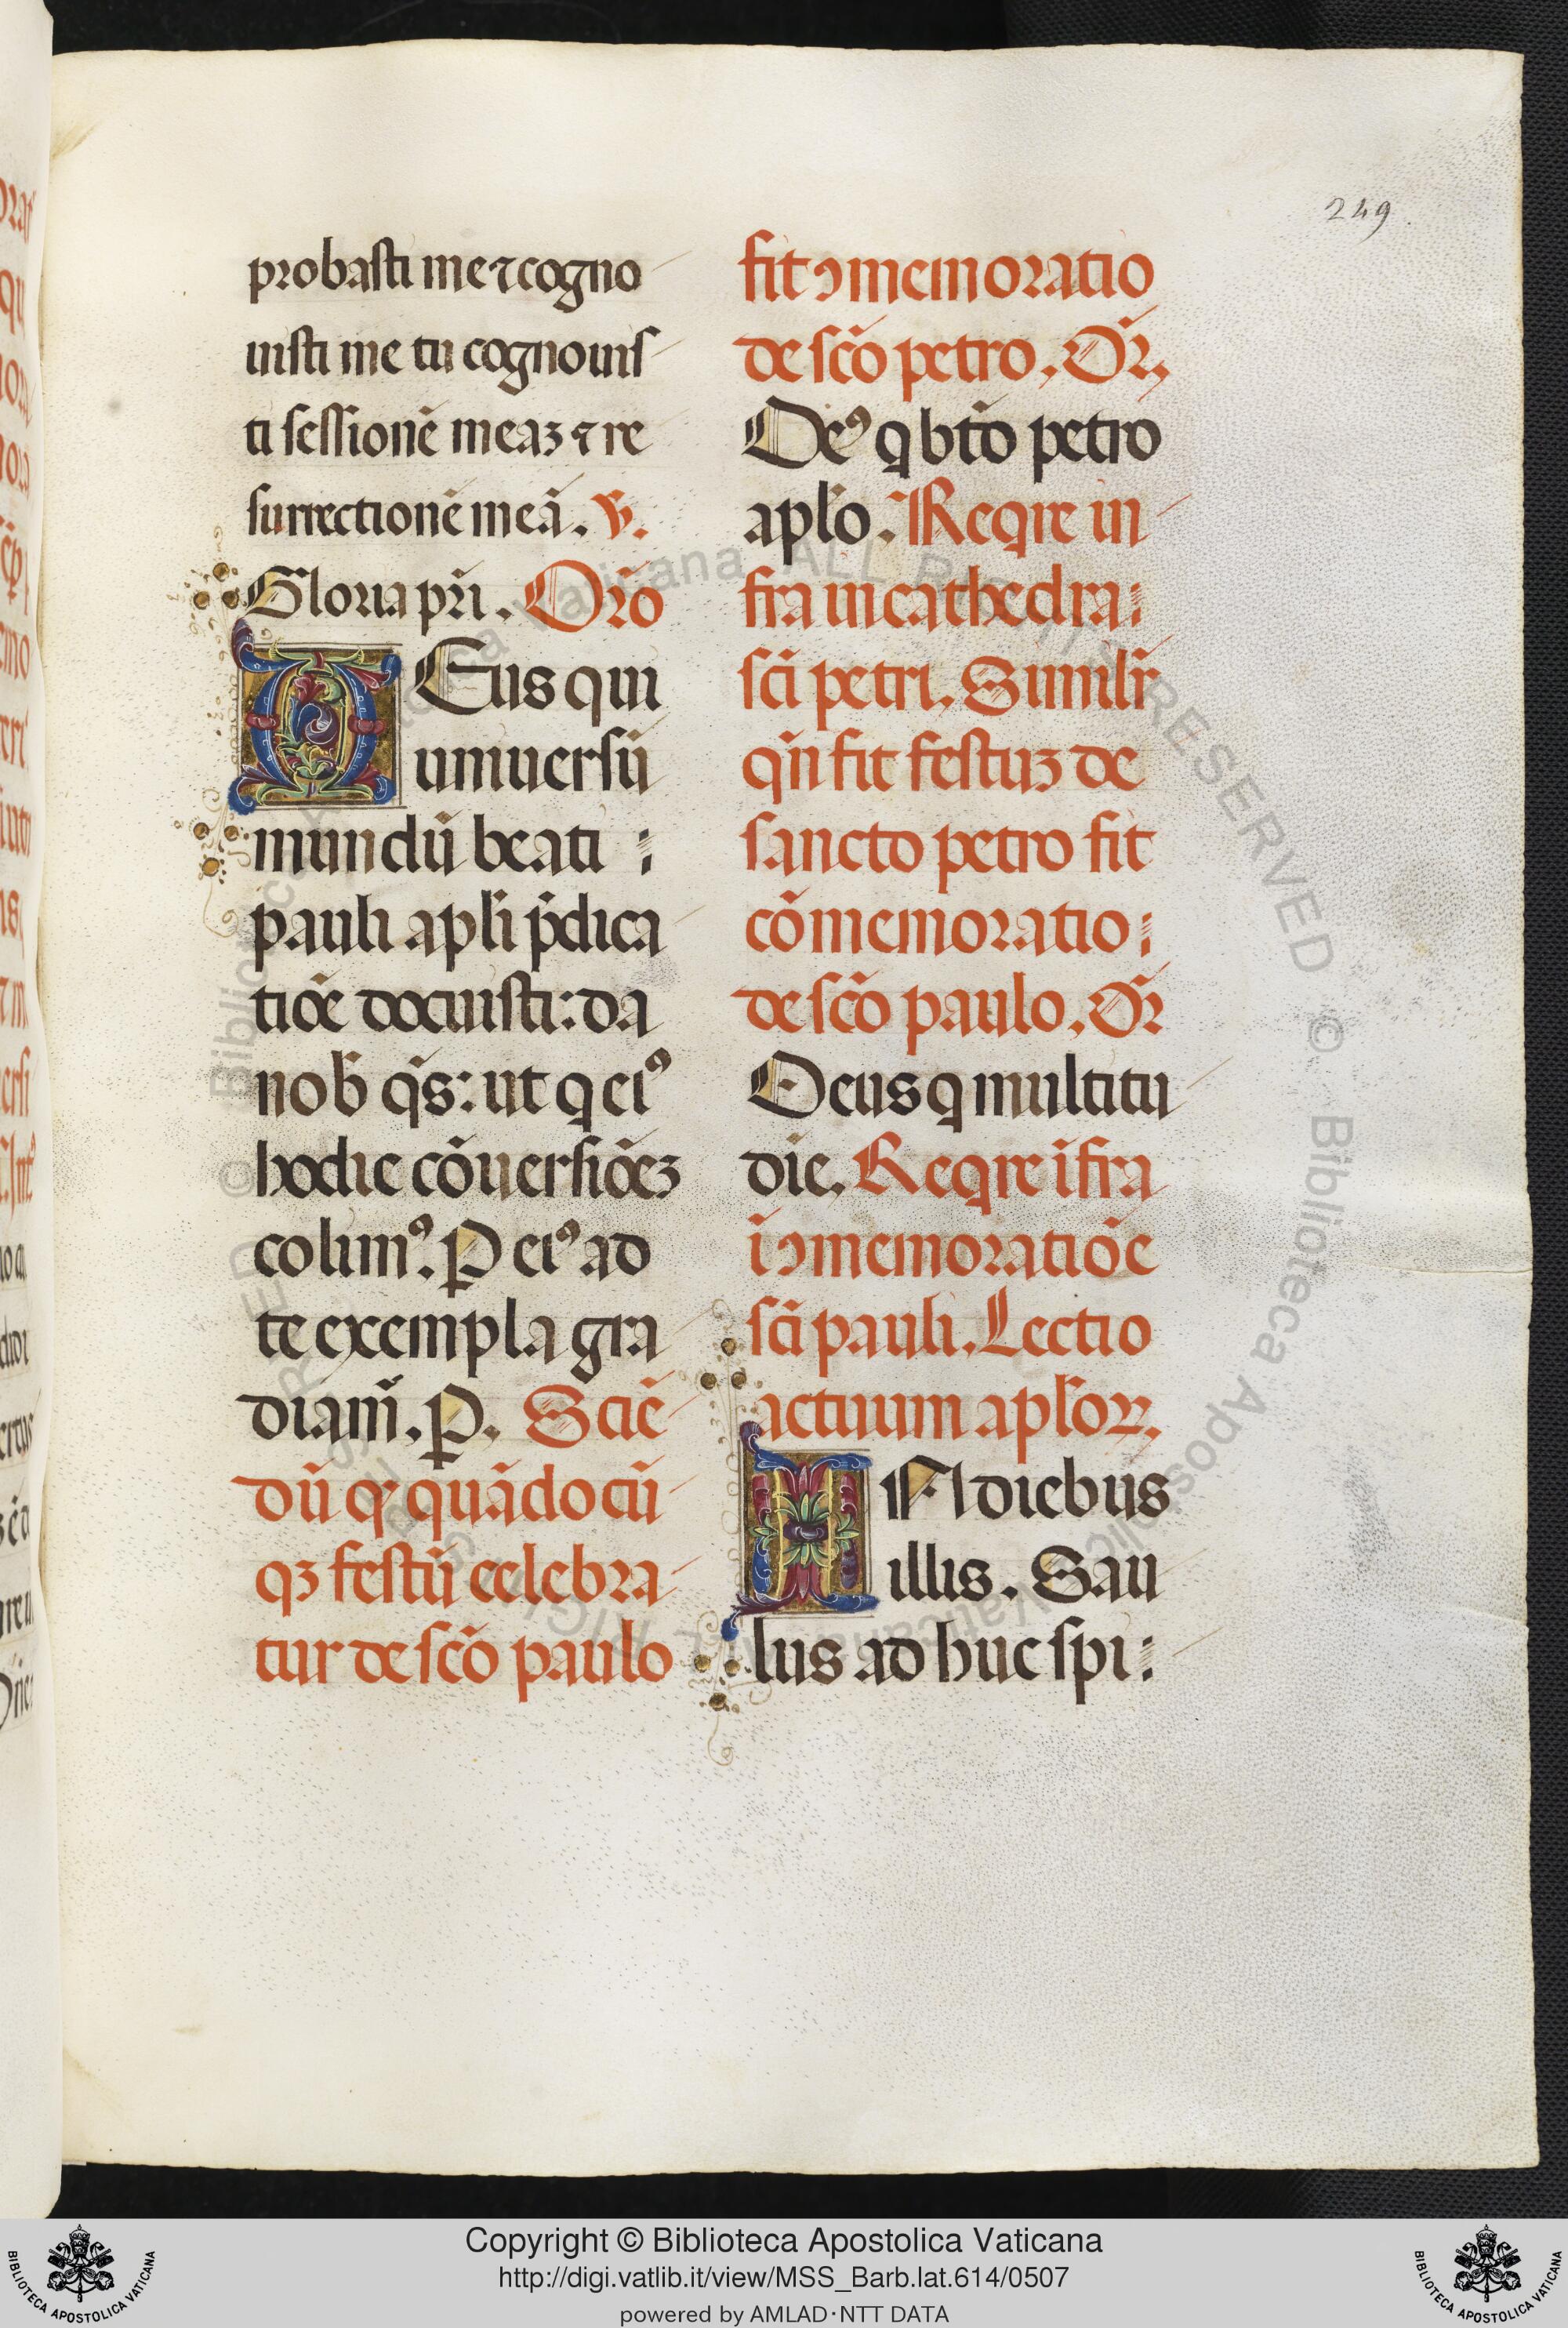 249
probasti me ⁊ cogno
uisti me tu cognouis
ti sessionē meaꝫ ⁊ re
surrectionē meā. ℣.
Gloria pr̄i. Or̄o
DEus qui
uniuersū
mundū beati
pauli apl̄i p̄dica
tiōe docuisti: da
nob̄ q̄s: ut q ei⁹
hodie cōuersiōeꝫ
colim⁹. P ei⁹ ad
te exempla gra
diam̄. P. Sciē
dū ꝙ quādocū
qꝫ festū celebra
tur de sc̄o paulo
fit ꝯmemoratio
de sc̄o petro. Or̄.
De⁹ q bt̄o petro
apl̄o. Reqre in
fra in cathedra
sc̄i petri. Similr̄
qn̄ fit festuꝫ de
sancto petro fit
cōmemoratio
de sc̄o paulo. Or̄
Deus q multitu
die. Reqre īfra
ī ꝯmemoratiōe
sc̄i pauli. Lectio
actuum apl̄oꝝ.
IN diebus
illis. Sau
lus adhuc spi
Copyright © Biblioteca Apostolica Vaticana
http://digi.vatlib.it/view/MSS_Barb.lat.614/0507
powered by AMLAD·NTT DATA
BIBLIOTECA APOSTOLICA VATICANA
BIBLIOTECA APOSTOLICA VATICANA